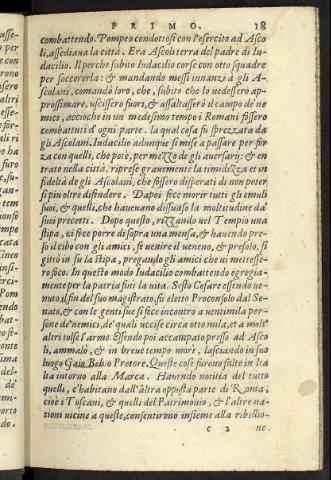 PRIMO. 18
combattendo. Pompeo condottosi con l'esercito ad Asco
li, assediaua la città. Era Ascoli terra del padre di Iu-
dacilio. Il perche subito Iudacilio corse con otto squadre
per soccorerla: & mandando messi innanzi à gli A-
scolani, comandò loro, che, subito che lo uedessero ap-
prossimare, uscissero fuori, & assaltassero il campo de ne
mici, accioche in un medesimo tempo i Romani fossero
combattuti d'ogni parte. la qual cosa fu sprezzata da
gli Ascolani. Iudacilio adunque si mise a passare per for
za con quelli, che potè, per mezzo de gli auersarij: & en
trato nella città, riprese grauemente la timidezza et in
fideltà de gli Ascolani, che fossero disperati di non poter
si piu oltre difendere. Dapoi fece morir tutti gli emuli
suoi, & quelli, che haueuano dissuaso la moltitudine da'
suoi precetti. Dopo questo, rizzando nel Tempio una
stipa, ui fece porre di sopra una mensa, & hauendo pre-
so il cibo con gli amici, fè uenire il ueneno, & presolo, si
gittò in su la stipa, pregando gli amici che ui mettesse-
ro fuoco. In questo modo Iudacilio combattendo egregia-
mente per la patria finì la uita. Sesto Cesare essendo ue-
nuto il fin del suo magistrato, fu eletto Proconsolo dal Se-
nato, & con le genti sue si fece incontro a uentimila per-
sone de' nemici, de' quali uccise circa otto mila, et a molti
altri tolse l'arme. Essendo poi accampato presso ad Asco
li, ammalò, & in breue tempo morì, lasciando in suo
luogo Gaio Bebio Pretore. Queste cose furono fatte in Ita
lia intorno alla Marca. Hauendo notitia del tutto
quelli, c'habitano dall'altra opposta parte di Roma,
cioè i Toscani, & quelli del Patrimonio, & l'altre na-
tioni uicine a queste, consentirono insieme alla ribellio-
C 2 ne.